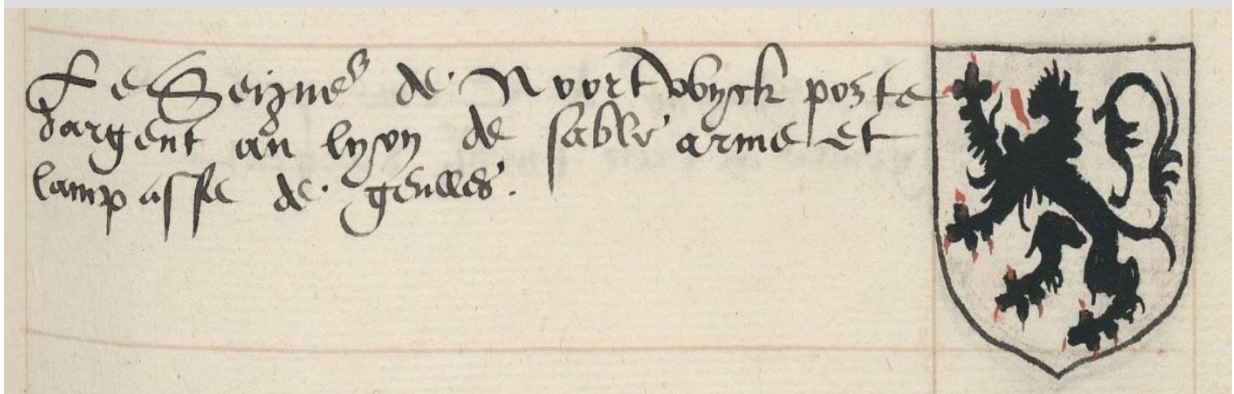 Le Seigneʳ de Noortwyck porte
dargent au lyon de sable arme et
lampasse de geulles.